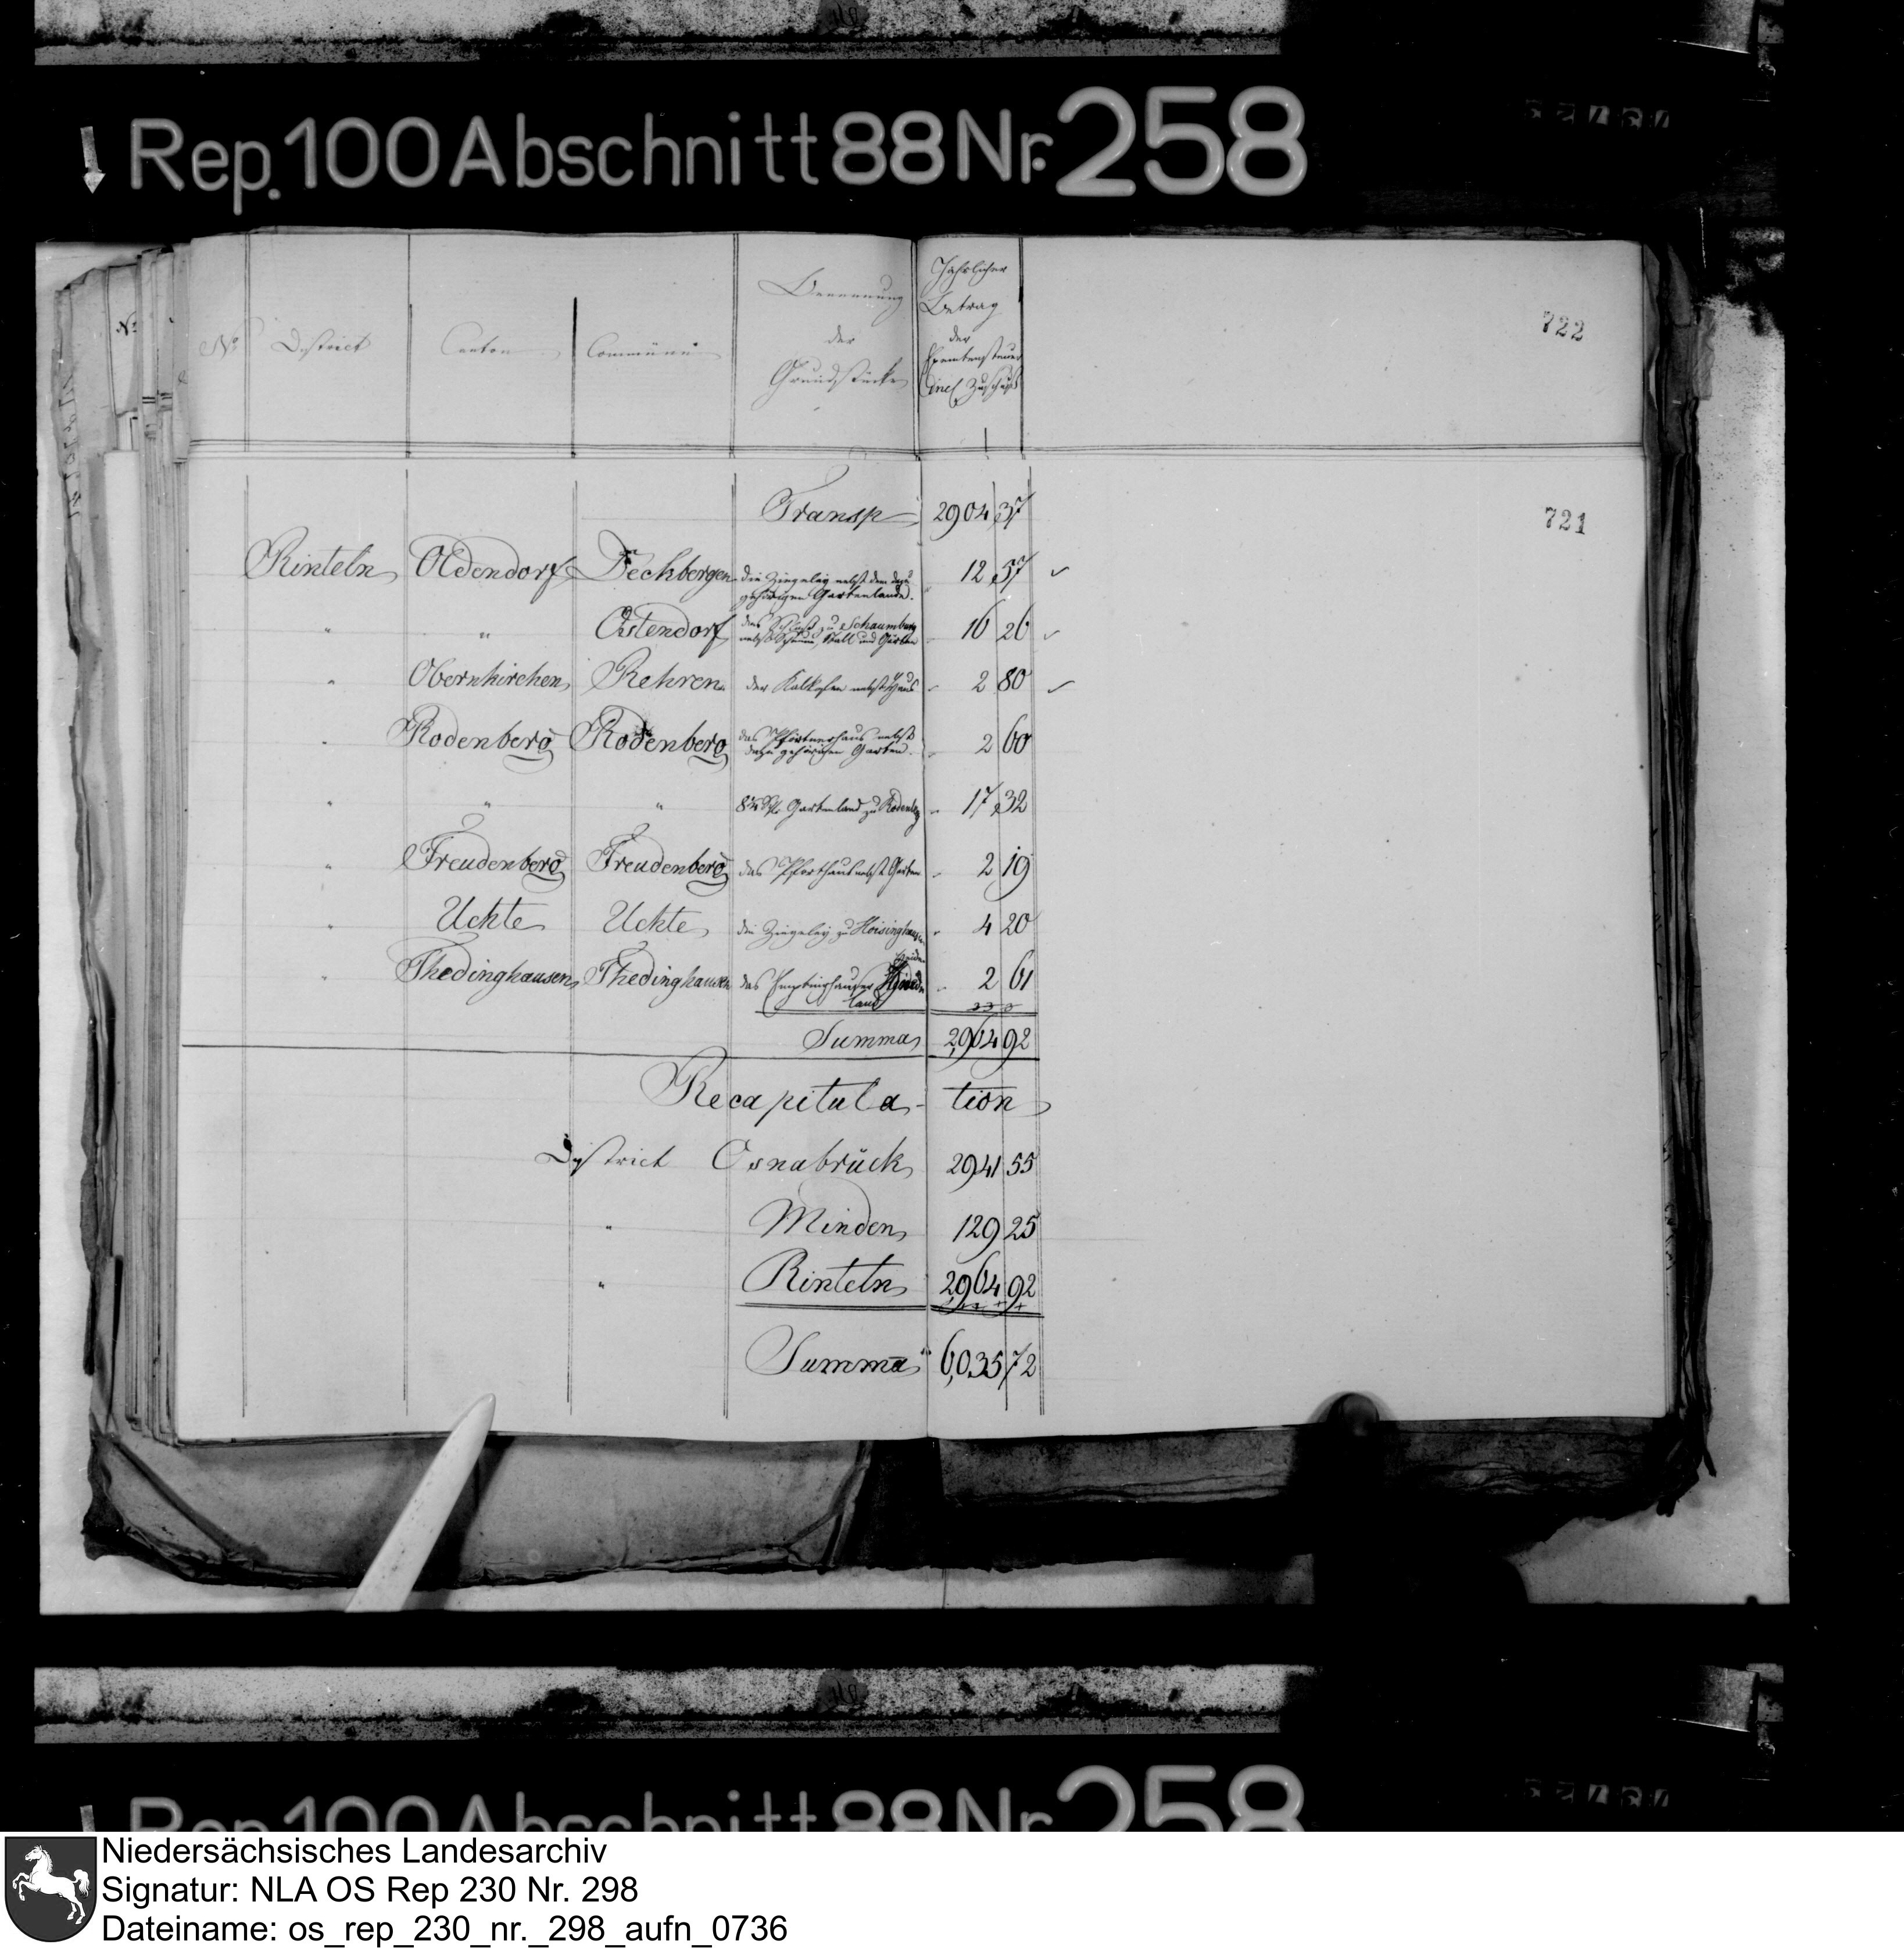 Rep. 100 Abschnitt 88 Nr. 258
722
No District Canton Commüne Benennung der Grundstücke Jährlicher Betrag der Exemtensteuer incl Zuschuß
721
Transp 2904 37
Rinteln Oldendorf Deckbergen die Ziegeley nebst dem dazu
gehörigen Gartenlande. " 12 57
" " Ostendorf das Schloß zu Schaumburg
nebst Scheune, Stall und Garten " 16 26
" Obernkirchen Rehren der Kalkofen nebst Haus " 2 80
" Rodenberg Rodenberg das Pförtnerhaus nebst
dazu gehörigen Garten. " 2 60
" " " Gartenland zu Rodenberg " 17 32
" Freudenberg Freudenberg das Pforthaus nebst Garten " 2 19
" Uchte Uchte die Ziegeley zu Hoisinghausen " 4 20
" Thedinghausen Thedinghausen das Emptinghauser
land " 2 61
Summa 2,964 92
Recapitula-tion
District Osnabrück 2941 55
" Minden 129 25
" Rinteln 2,964 92
Summa 6,035 72
Rep. 100 Abschnitt 88 Nr. 258
Niedersächsisches Landesarchiv
Signatur: NLA OS Rep 230 Nr. 298
Dateiname: os_rep_230_nr._298_aufn_0736